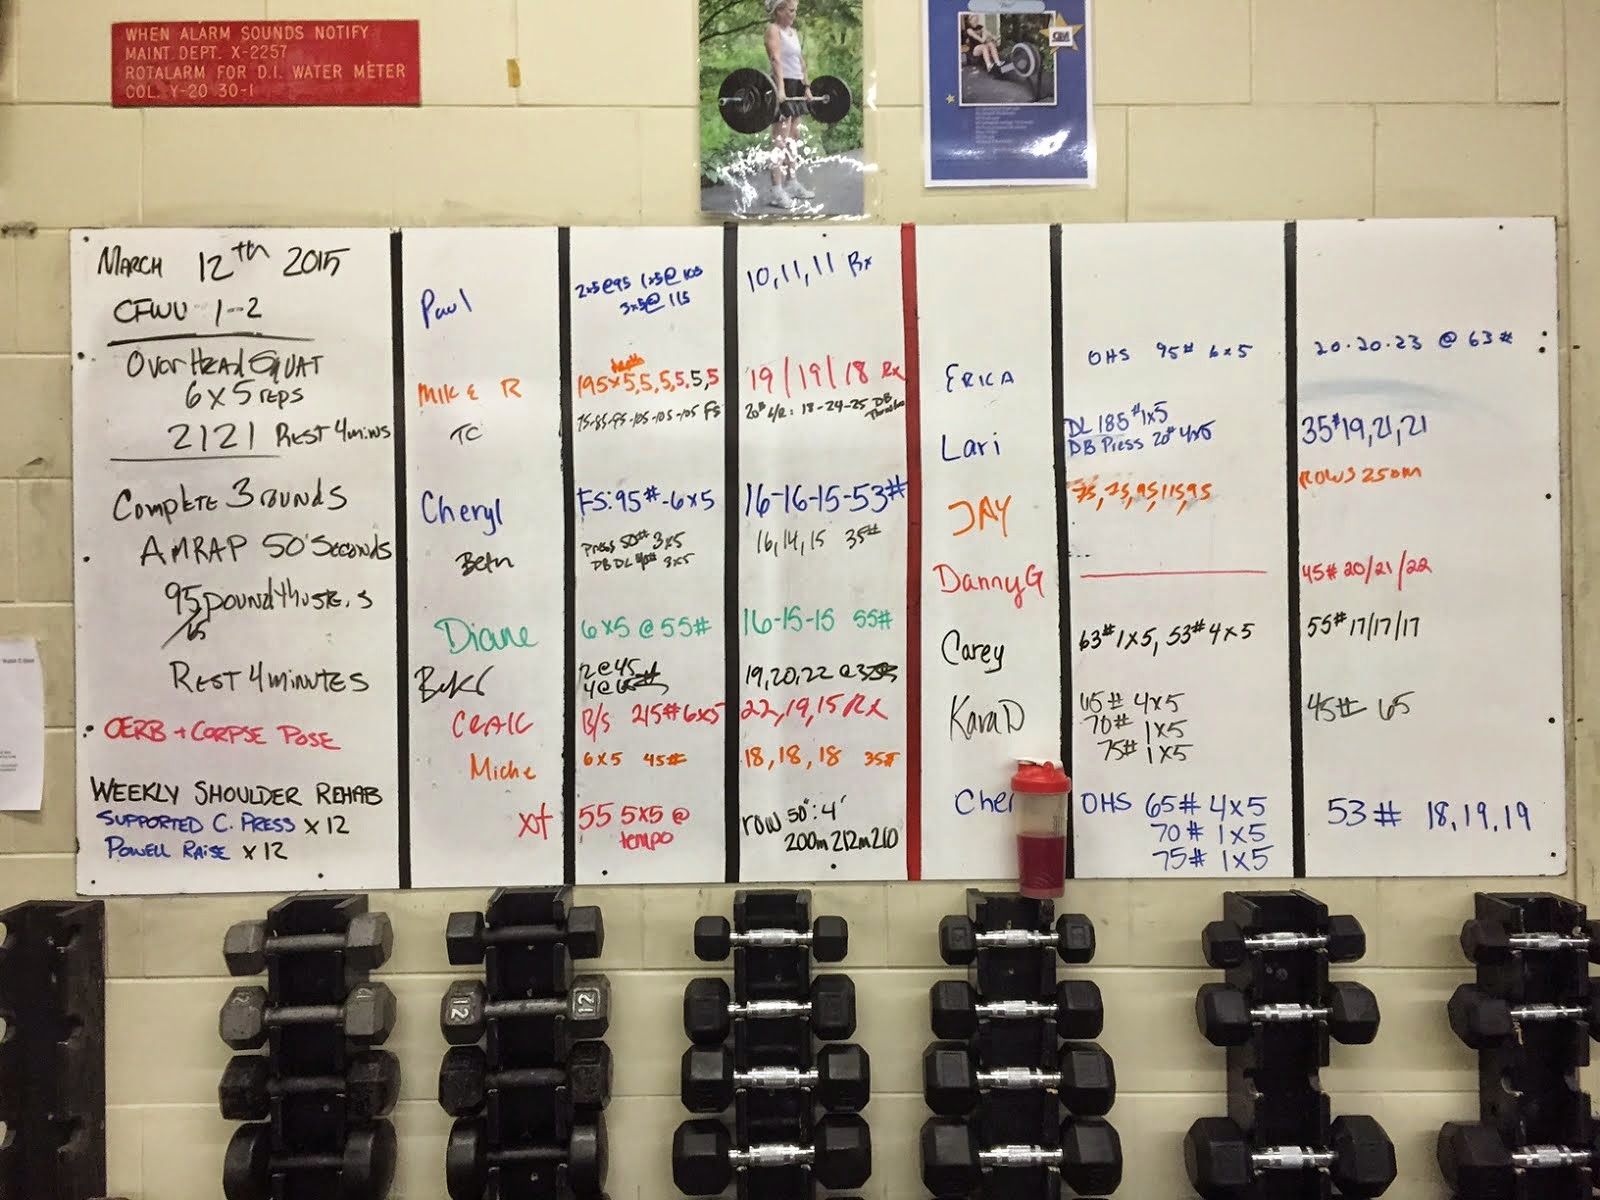 WHEN ALARM SOUNDS NOTIFY
MAINT. DEPT. X-2257
ROTALARM FOR D.I. WATER METER
COL. Y-20 30-1
MARCH 12th 2015
CFWU 1-2
OVERHEAD SQUAT
6x5 REPS
2121 REST 4 mins
COMPLETE 3 ROUNDS
AMRAP 50 SECONDS
95 POUND
/65
REST 4 MINUTES
+ CORPSE POSE
WEEKLY SHOULDER REHAB
SUPPORTED C. PRESS x 12
POWELL RAISE x 12
Paul
2x5@95 1x5@105
3x5@115
10,11,11 Rx
MIKE R
depth
195x5,5,5,5,5,5
19/19/18 Rx
TC
FS
18-24-25 DB
Cheryl
FS: 95#-6x5
16-16-15-53#
Beth
Press 50# 3x5
DB DL 3x5
16,14,15 35#
Diane
6x5 @ 55#
16-15-15 55#
2@45
4@65
19,20,22 @
CRAIG
B/S 215# 6x5
22,19,15 Rx
Miche
6x5 45#
18,18,18 35#
xt
55 5x5 @
tempo
row 50":4'
200m 212m 210
ERICA
OHS 95# 6x5
20-20-23 @ 63#
Lari
DL 185# 1x5
DB Press 20# 4x5
35# 19,21,21
JAY
75,75,95,115,95
ROWS 250m
Danny G
45# 20/21/22
Carey
63# 1x5, 53# 4x5
55# 17/17/17
Kara D
65# 4x5
70# 1x5
75# 1x5
45# 65
Cher
OHS 65# 4x5
70# 1x5
75# 1x5
53# 18,19,19
12
12